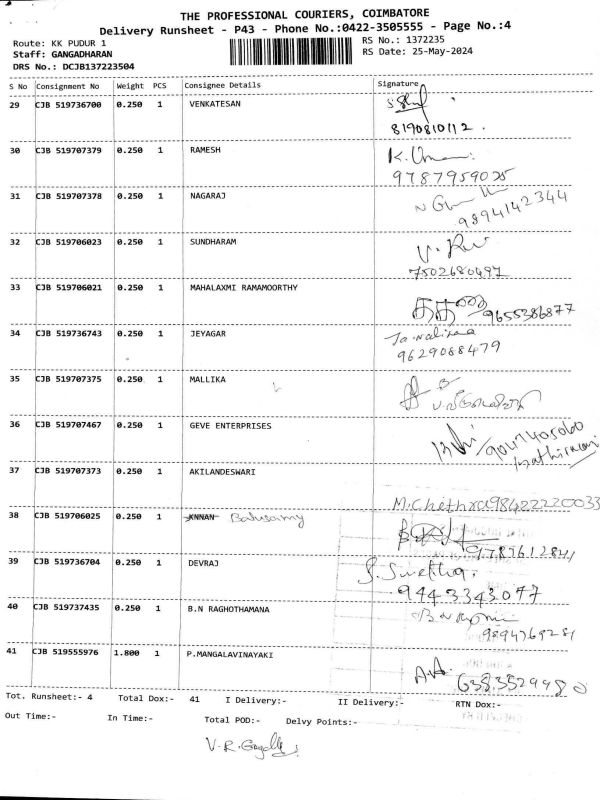 THE PROFESSIONAL COURIERS, COIMBATORE
Delivery Runsheet - P43 - Phone No.:0422-3505555 - Page No.:4
Route: KK PUDUR 1
RS No.: 1372235
Staff: GANGADHARAN
RS Date: 25-May-2024
DRS No.: DCJB137223504
S No Consignment No Weight PCS Consignee Details Signature
29 CJB 519736700 0.250 1 VENKATESAN
8190810112.
30 CJB 519707379 0.250 1 RAMESH K.Uma
9787959025
31 CJB 519707378 0.250 1 NAGARAJ
9894142344
32 CJB 519706023 0.250 1 SUNDHARAM
7502680497
33 CJB 519706021 0.250 1 MAHALAXMI RAMAMOORTHY
9655386877
34 CJB 519736743 0.250 1 JEYAGAR
9629088479
35 CJB 519707375 0.250 1 MALLIKA
36 CJB 519707467 0.250 1 GEVE ENTERPRISES
37 CJB 519707373 0.250 1 AKILANDESWARI
M.Chethra 98422220033
38 CJB 519706025 0.250 1 KNNAN Balusamy
39 CJB 519736704 0.250 1 DEVRAJ S.Swetha.
9443343077
40 CJB 519737435 0.250 1 B.N RAGHOTHAMANA
9894769281
41 CJB 519555976 1.800 1 P.MANGALAVINAYAKI
6383529980
Tot. Runsheet:- 4 Total Dox:- 41 I Delivery:- II Delivery:- RTN Dox:-
Out Time:- In Time:- Total POD:- Delvy Points:-